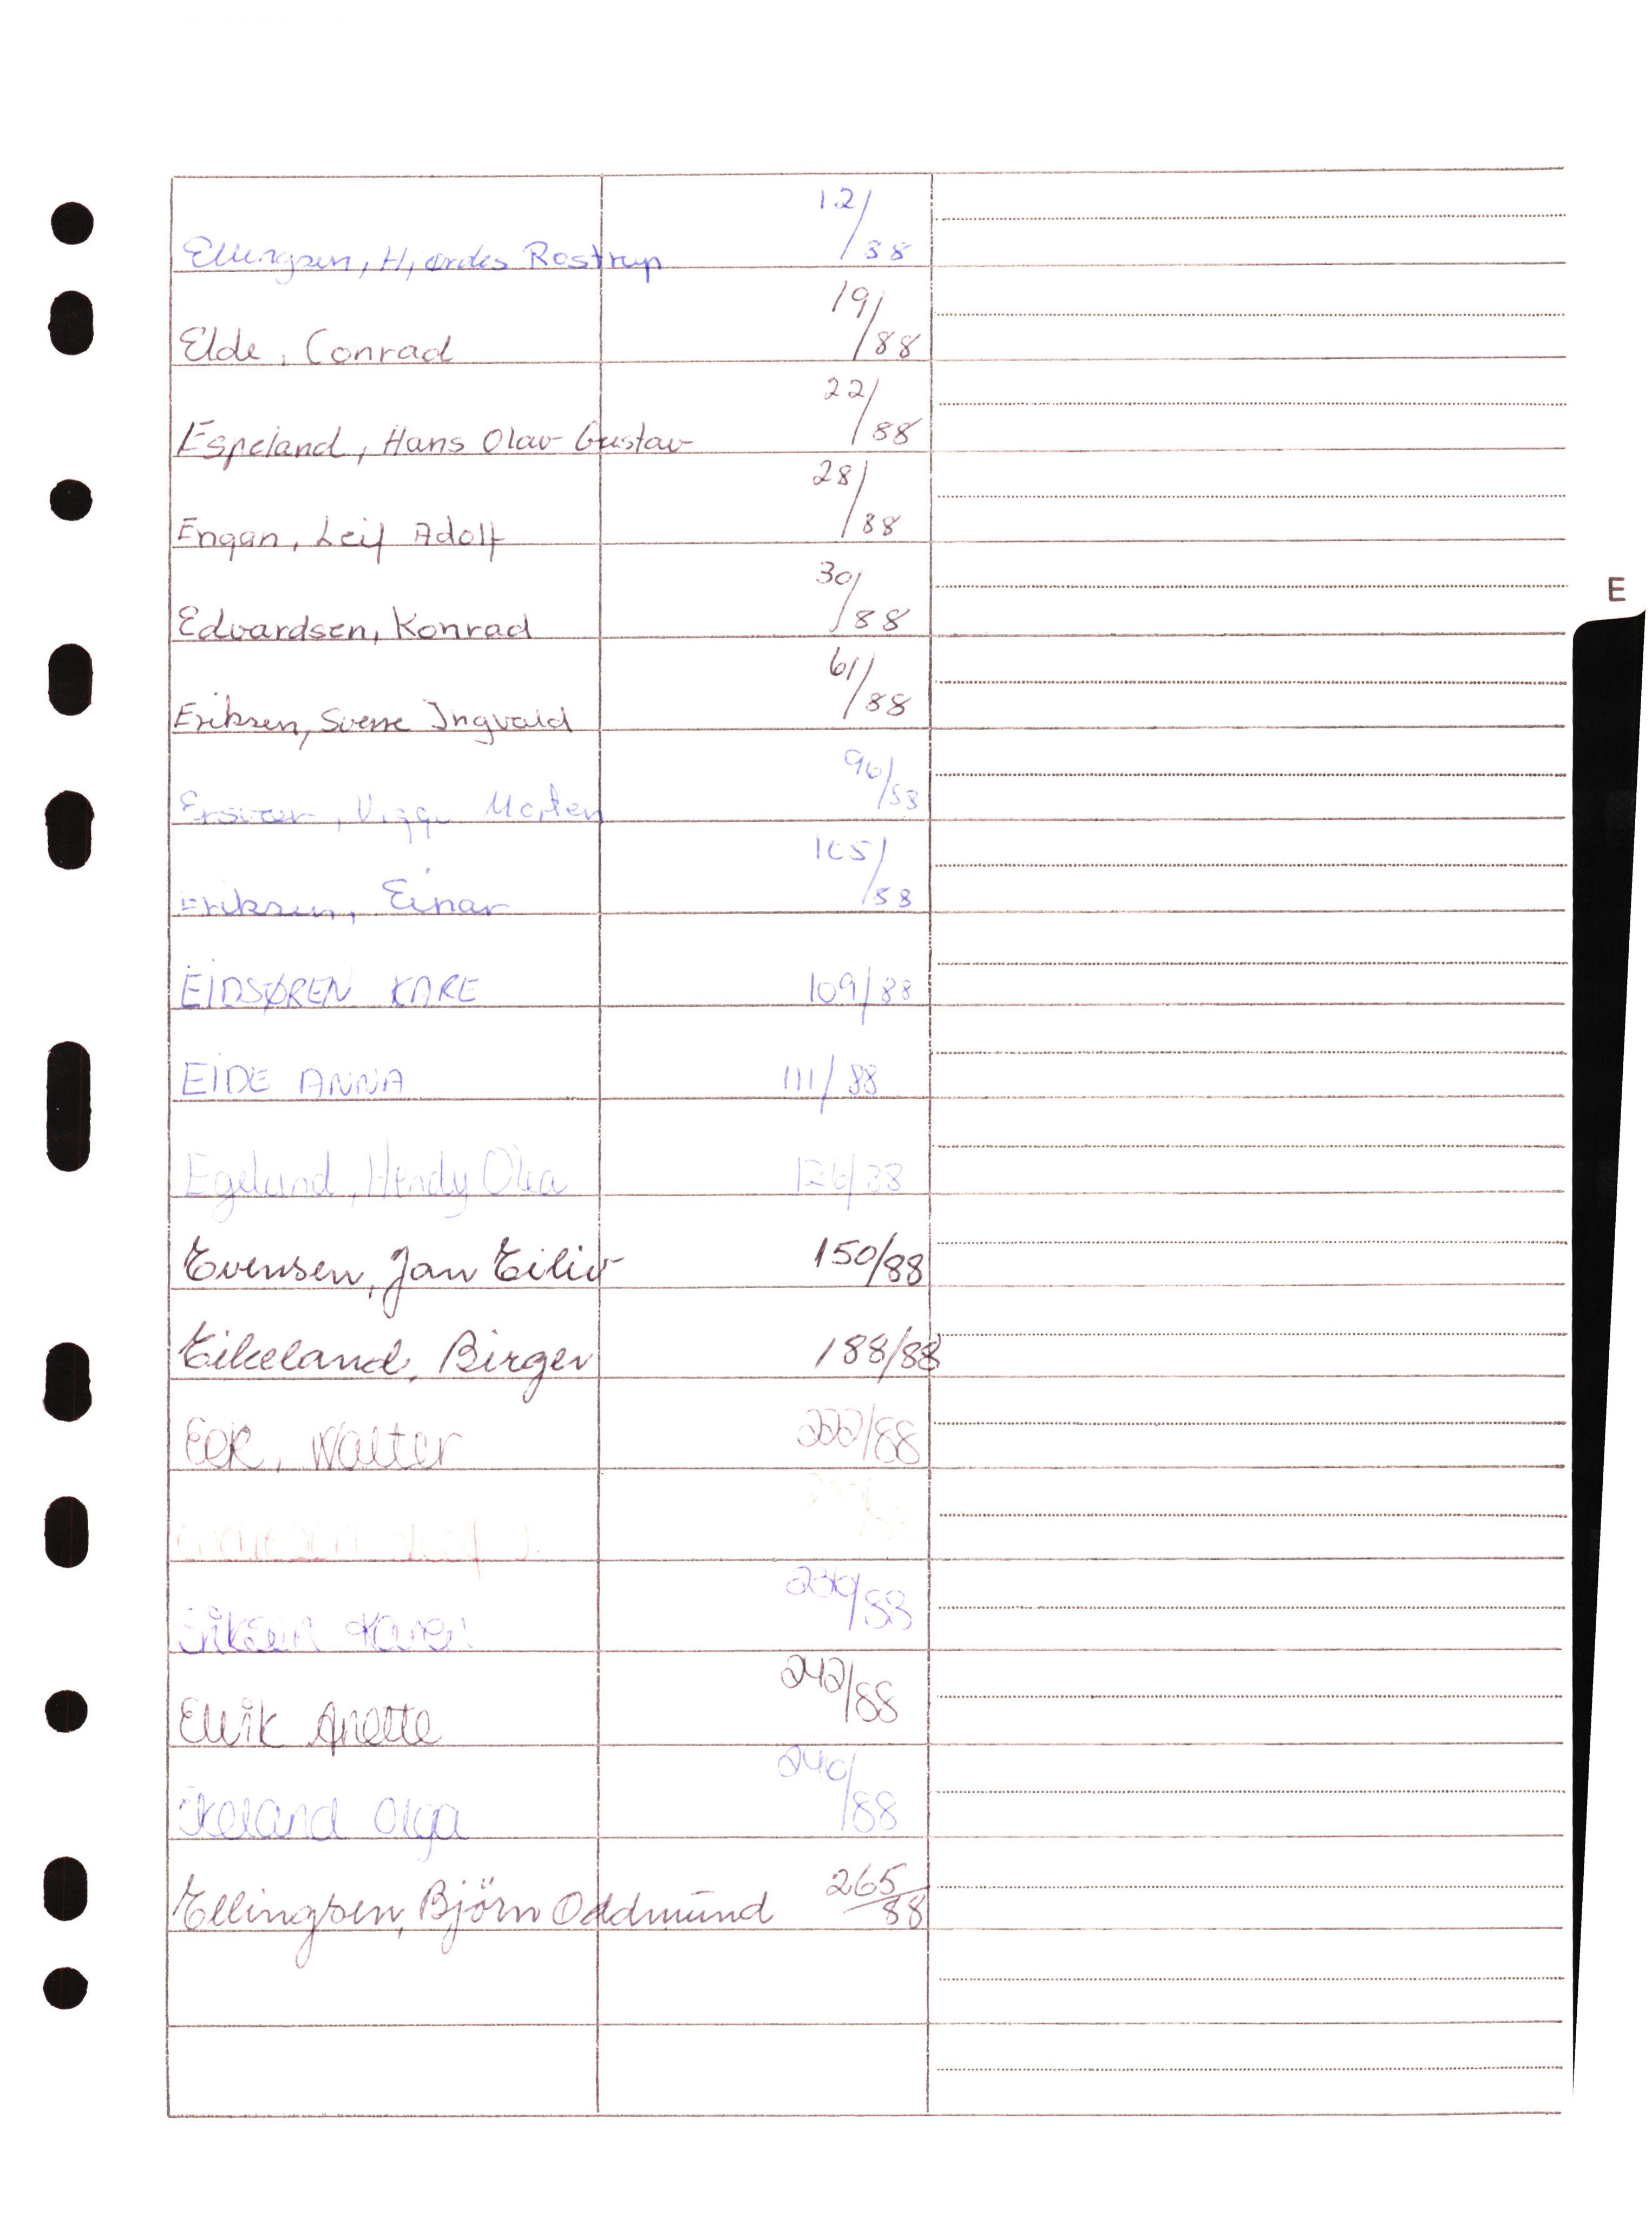 Ellingsen, Hjørdis Rostrup 12/88
Elde, Conrad 19/88
Espeland, Hans Olav Gustav 22/88
Engan, Leif Adolf 28/88
Edvardsen, Konrad 30/88
E
Eriksen, Sverre Ingvald 61/88
Viggo Morten 96/88
Eriksen, Einar 105/88
EIDSØREN KARE 109/88
EIDE ANNA 111/88
Egelund, Hendy Olea 126/88
Evensen, Jan Eiliv 150/88
Eikeland, Birger 188/88
Eek, Walter 222/88
Eriksen Karen /88
Ellvik Anette 242/88
Ekeland Olga /88
Ellingsen, Bjørn Oddmund 265/88